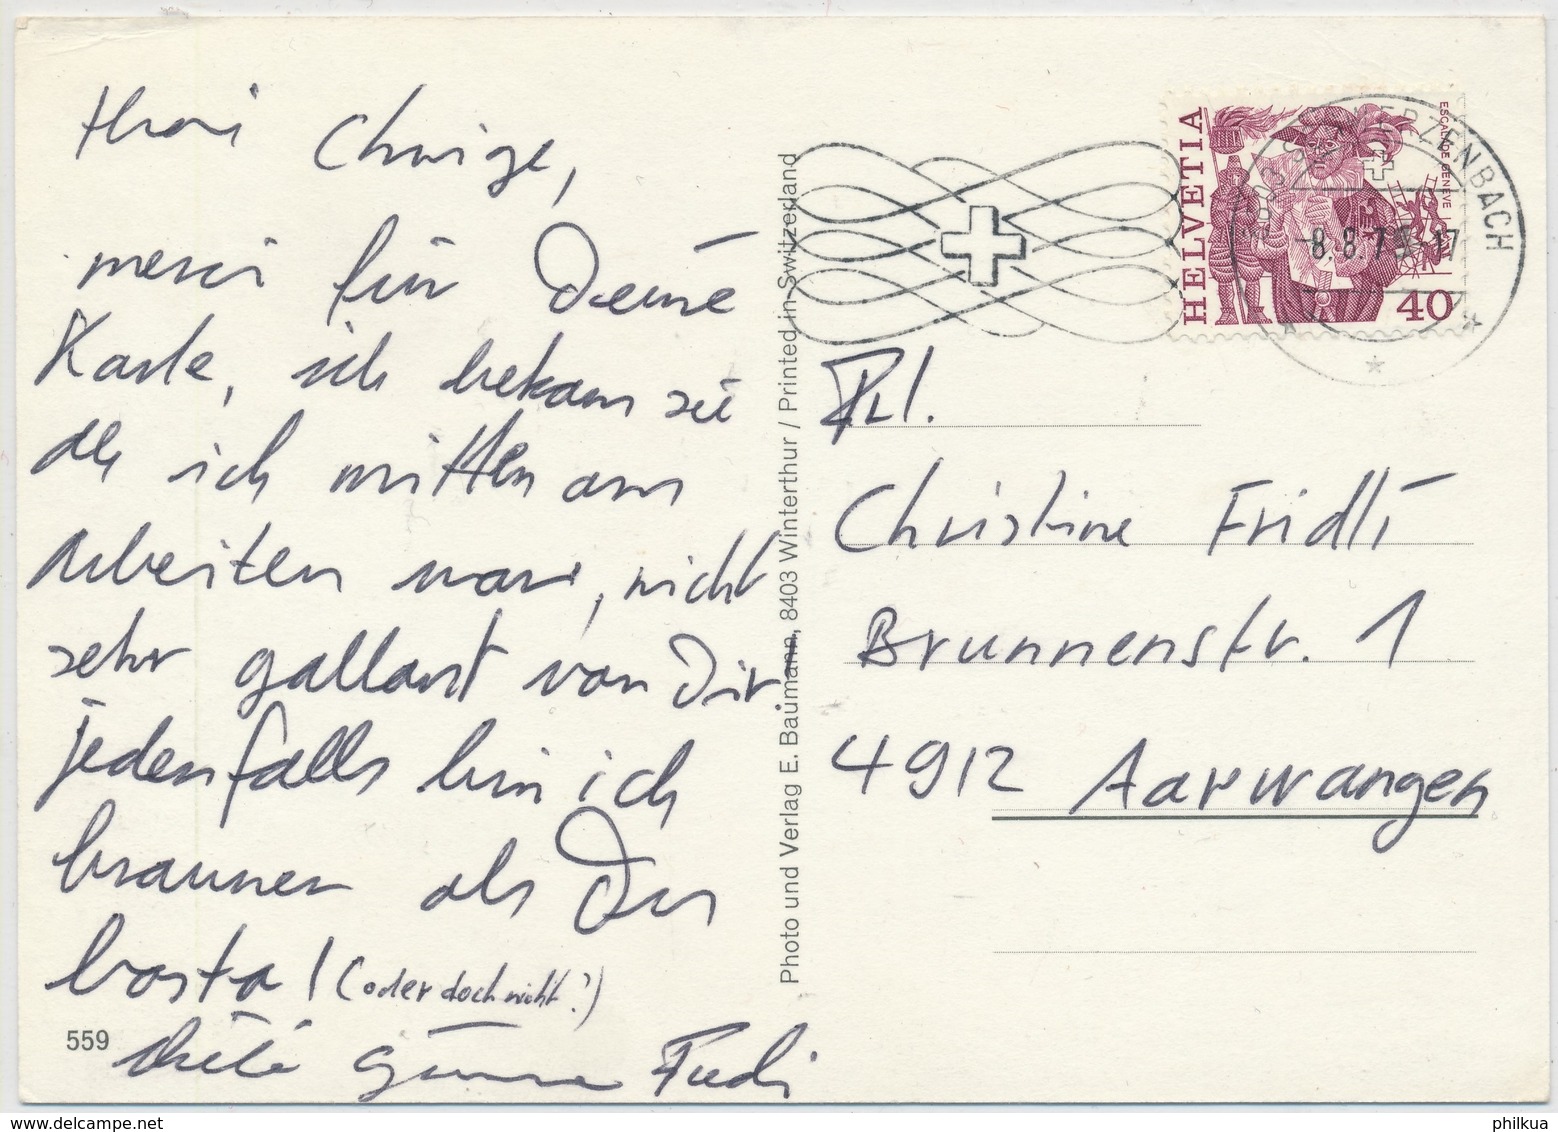 merci für Deine
Karte, ich bekam sie
als ich mitten am
arbeiten war, nicht
sehr gallant von Dir
jedenfalls bin ich
brauner als Du
basta! (oder doch nicht?)
559
Photo und Verlag E. Baumann, 8403 Winterthur / Printed in Switzerland
HELVETIA
ESCALADE GENÈVE
40
8.8.79-17
Frl.
Christine Fridli
Brunnenstr. 1
4912 Aarwangen
philkua
delcampe.net